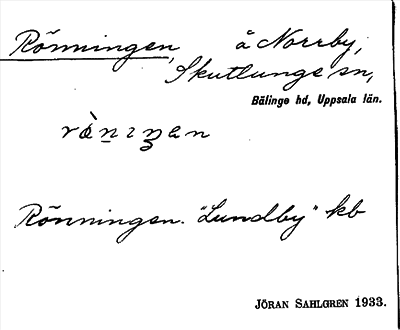 Rönningen, å Norrby,
Skutlunge sn,
Bälinge hd, Uppsala län.
Rönningen. "Lundby" kb
JÖRAN SAHLGREN 1933.